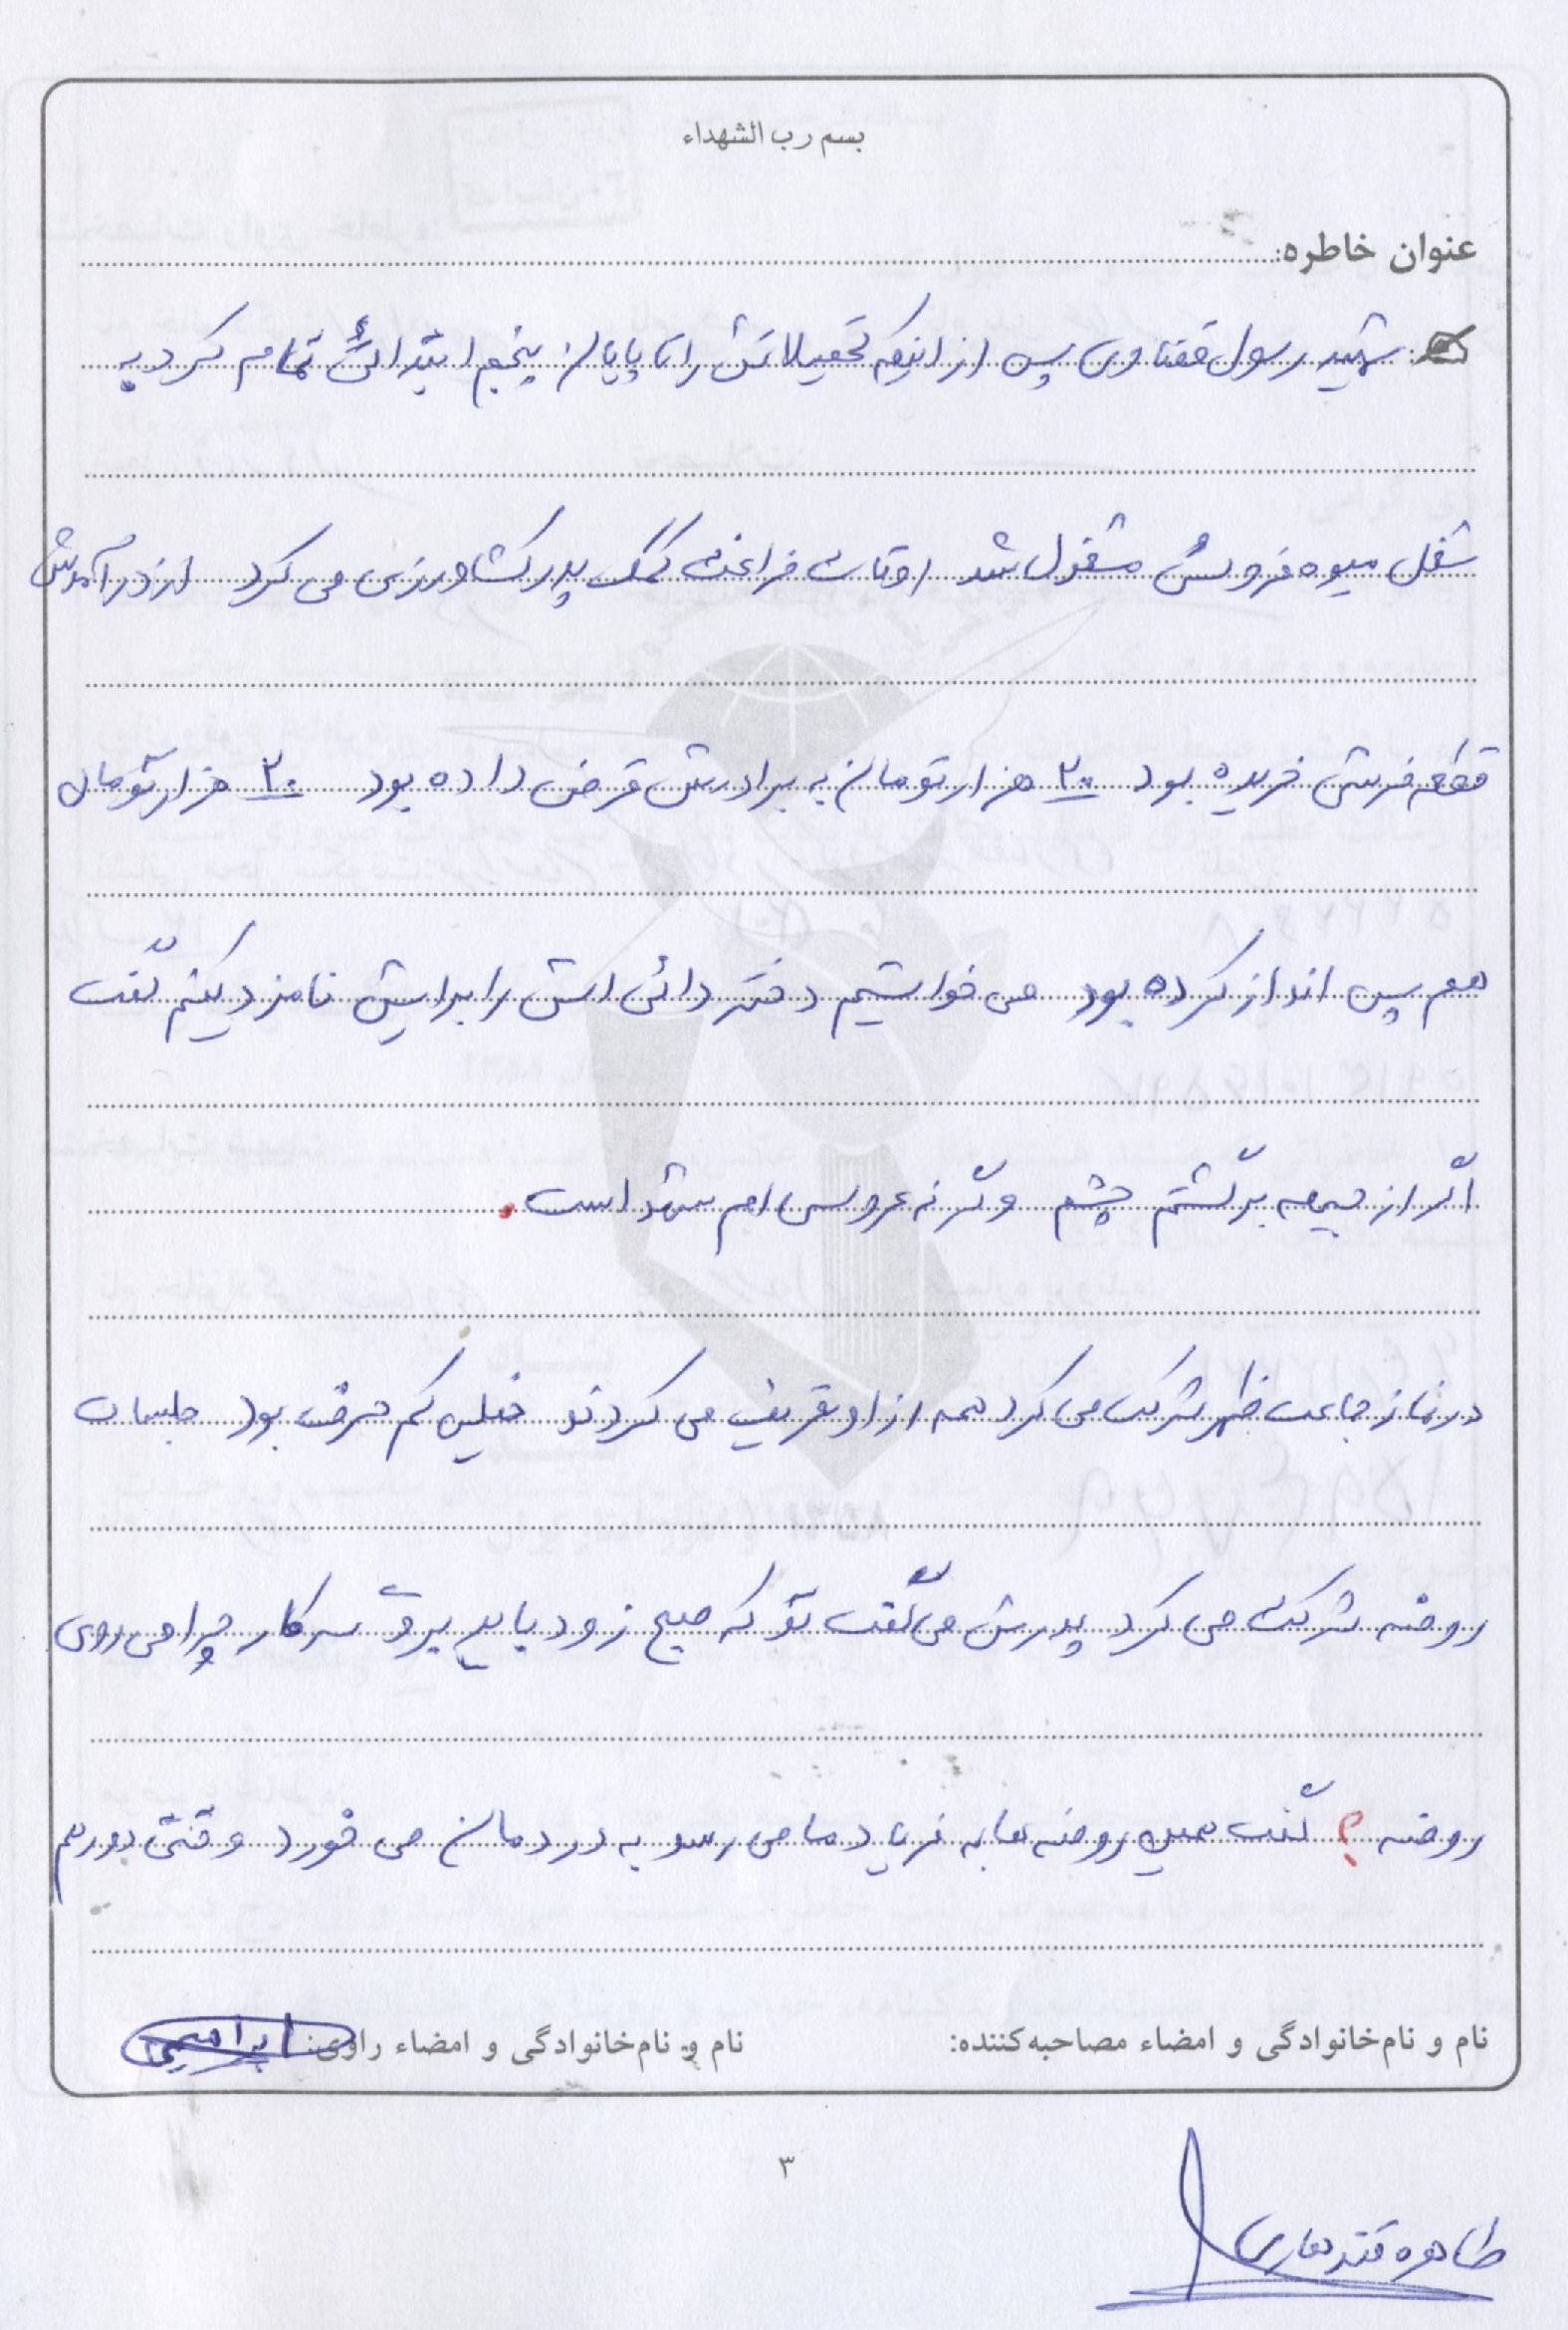 بسم رب الشهداء
عنوان خاطره:
شهید رسول قفقناوری پس از اینکه تحصیلاتش را تا پایان پنجم ابتدائی تمام کرد به
شغل میوه فروشی مشغول شد اوقات فراغت کمک پدر کشاورزی می کرد از درآمدش
قطعه فرشی خریده بود ۲۰ هزار تومان به برادرش قرض داده بود ۲۰ هزار تومان
هم پس انداز کرده بود می خواستیم دختر دائی اش را برایش نامزد کنیم گفت
اگر از جبهه برگشتم چشم وگرنه عروسی ام شهادت است.
در نماز جماعت ظهر شرکت می کرد همه از او تعریف می کردند خیلی کم حرف بود جلسات
روضه شرکت می کرد پدرش می گفت تو که صبح زود باید بروی سر کار چرا می روی
روضه ؟ گفت همین روضه ها به فریاد ما می رسد به دردمان می خورد وقتی دور هم
نام و نام‌خانوادگی و امضاء مصاحبه‌کننده:
نام و نام‌خانوادگی و امضاء راوی: ابراهیمی
۳
طاهره قندهاری